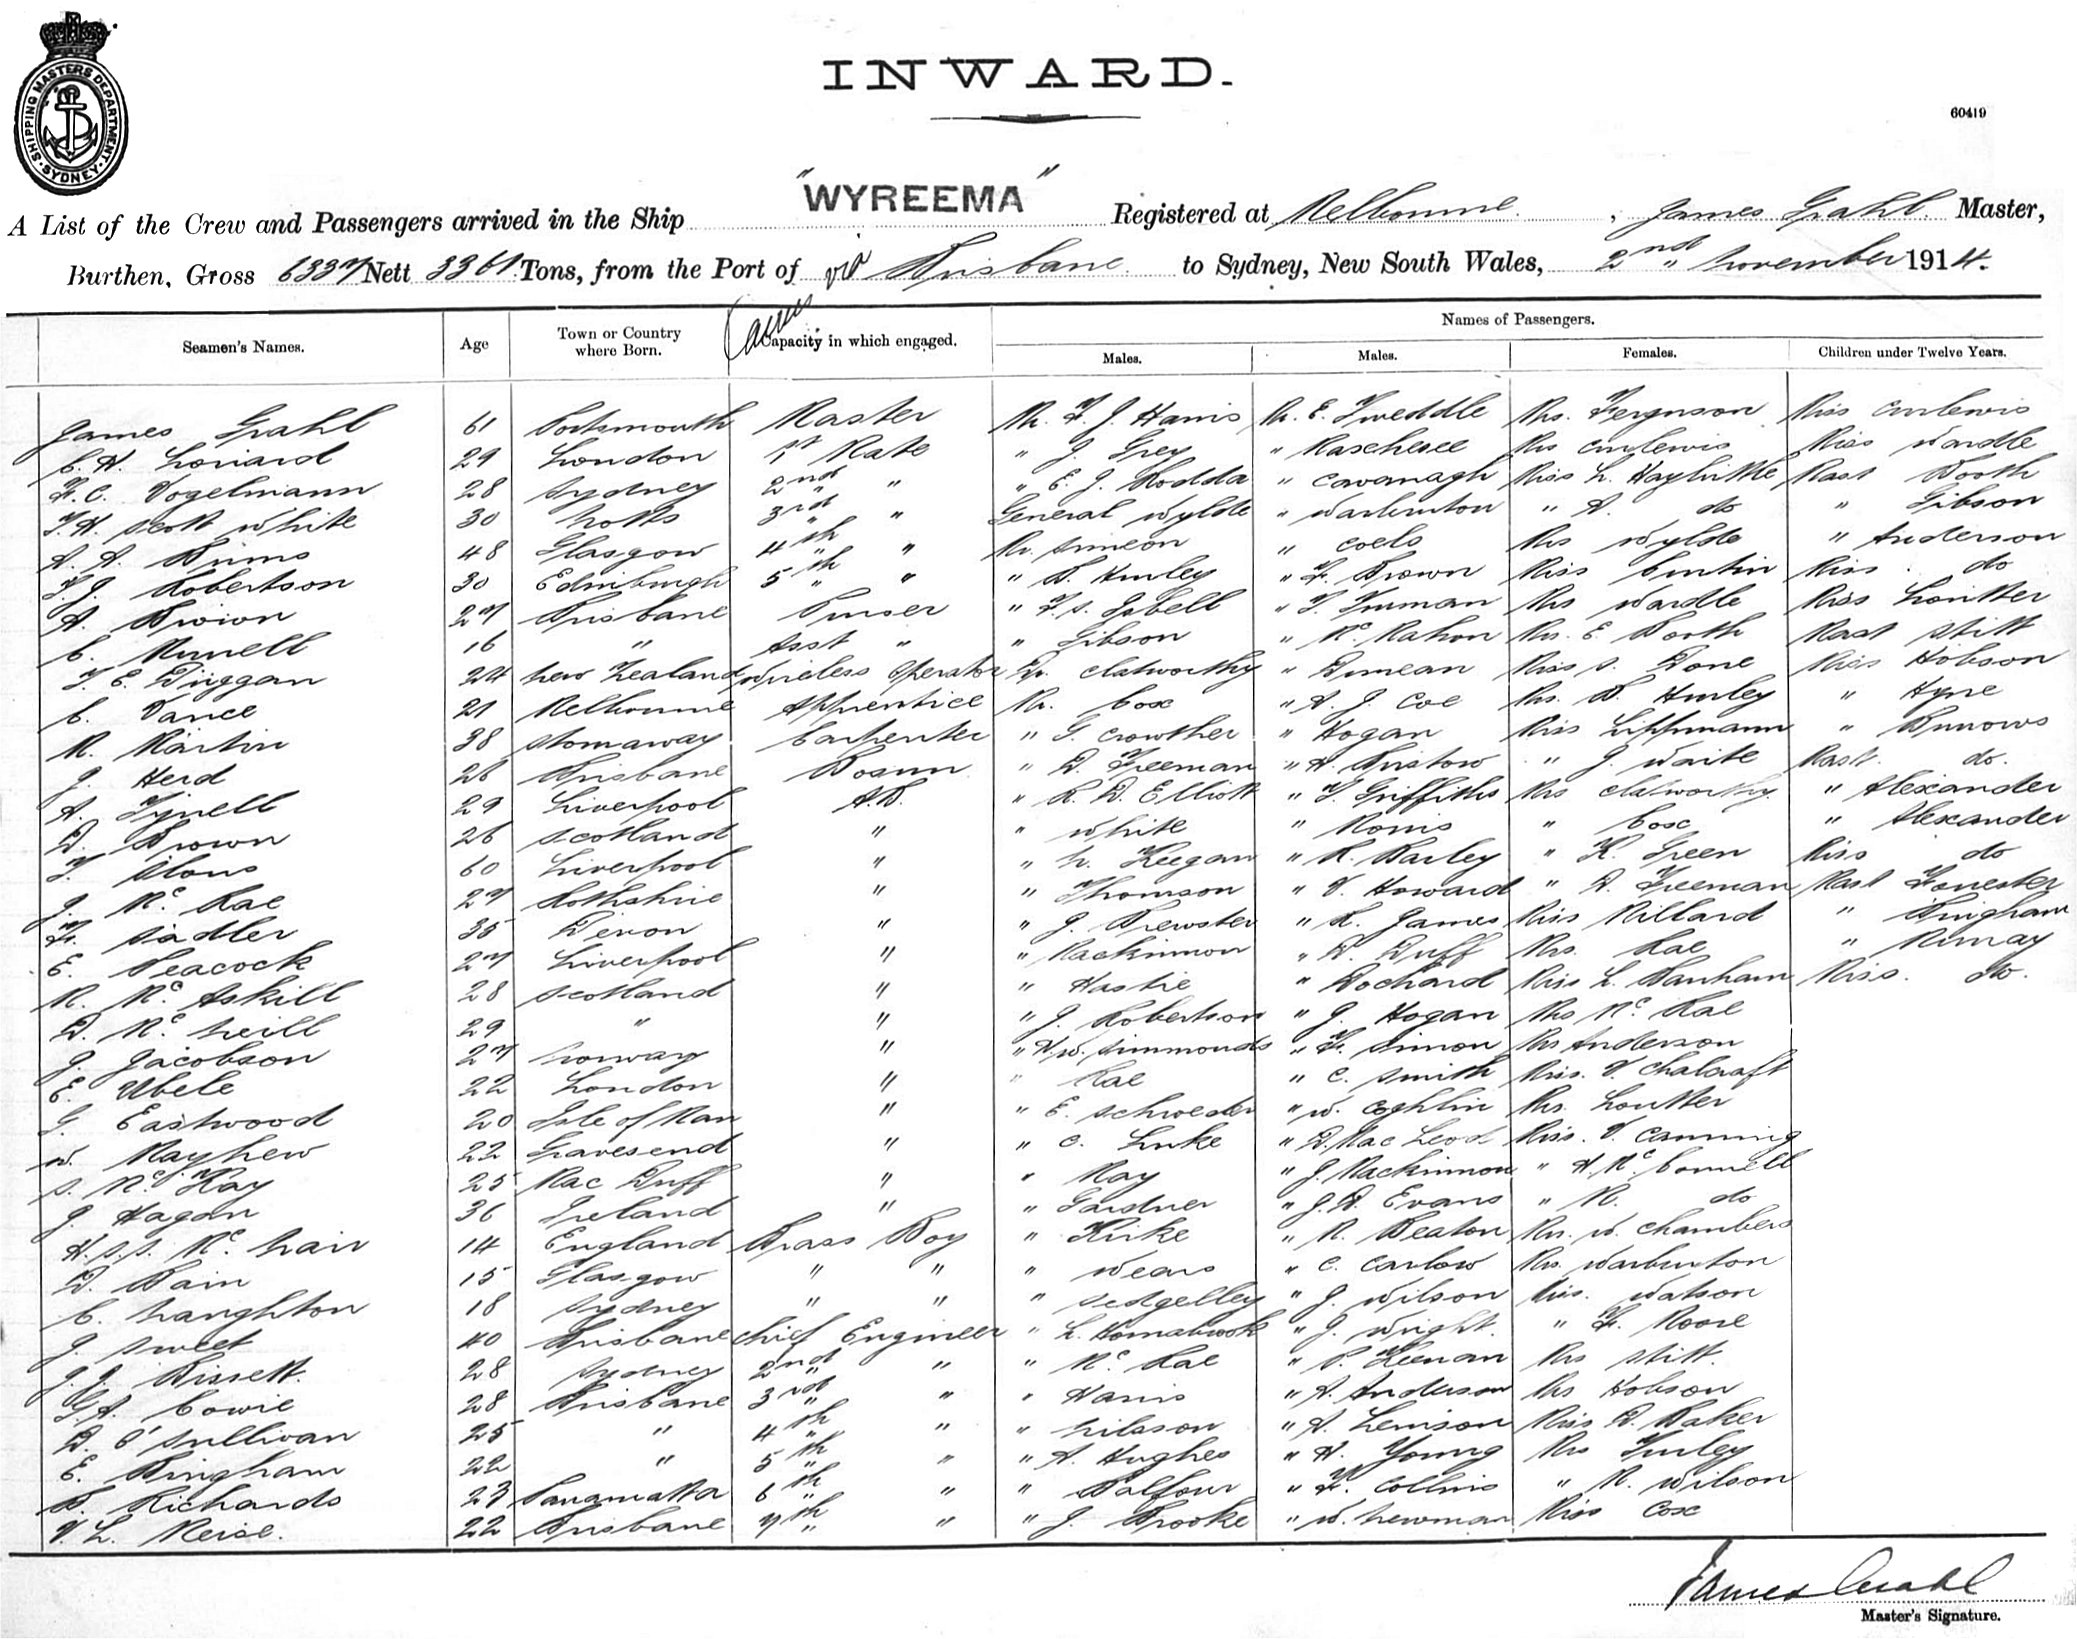 SHIPPING MASTERS DEPARTMENT · SYDNEY ·
INWARD.
60419
A List of the Crew and Passengers arrived in the Ship "WYREEMA" Registered at Melbourne. , James Grahl. Master,
Burthen, Gross 6337 Nett 3361 Tons, from the Port of via Brisbane to Sydney, New South Wales, 2nd November 1914.
Names of Passengers.
Seamen's Names. Age Town or Country where Born. Capacity in which engaged. Males. Males. Females. Children under Twelve Years.
James Grahl 61 Portsmouth Master Mr. F. J. Harris Mr. E. Tweddle Mrs. Ferguson Miss Curlewis
C. H. 29 London 1st Mate " J. Grey " Mrs Curlewis Miss Wardle
F. C. Vogelmann 28 Sydney 2nd " " E. J. Hodda " Cavanagh Miss L. Mast Booth
T. H. Scott White 30 Notts 3rd " General Wylde " Warburton " A. do " Gibson
A. A. Binns 48 Glasgow 4th " Mr. Simeon " Coels Mrs Wylde " Anderson
T. J. Robertson 30 Edinburgh 5th " " B. Hurley " F. Brown Miss Curtin Miss . do
A. 27 Brisbane Purser " F. S. Isbell " T. Truman Mrs Wardle Miss Loutter
C. Munell 16 " Asst " " Gibson " Mc Mahon Mrs. E. Booth Mast Stitt
T. E. Duggan 24 New Zealand Wireless Operator Dr. Clatworthy " Duncan Miss S. Done Miss Hobson
C. Vance 21 Melbourne Apprentice Mr. Cox " A. J. Coe Mrs. B. Hurley " Hyne
M. Martin 38 Stornaway Carpenter " G. Crowther " Hogan Miss Lippmann " Burrows
J. Herd 26 Brisbane Bosun " D. Freeman " H. Bristow " J. Waite Mast. do.
A. Tyrell 29 Liverpool A.B. " R. D. Elliott " T. Griffiths Mrs Clatworthy " Alexander
D. Brown 26 Scotland " " White " Morris " Cox " Alexander
T. Slous 60 Liverpool " " N. Keegan " R. Barley " K. Green Miss do
J. Mc Rae 27 Rothshire " " Thomson " V. Howard " D. Freeman Mast Forrester
F. Sadler 35 Devon " " J. Brewster " R. James Miss Millard " Bingham
E. Peacock 27 Liverpool " " Mackinnon " D. Duff Mrs. Rae " Murray
M. Mc Askill 28 Scotland " " Hastie " Bochard Miss L. Banham Miss. do.
D. Mc Neill 29 " " " J. Robertson " J. Hogan Mrs Mc Rae
J. Jacobson 27 Norway " " H. W. Simmonds " F. Simon Mrs Anderson
E. Ubele 22 London " " Rae " C. Smith Miss. V. Chalcraft
G. Eastwood 20 Isle of Man " " E. Schroeder " W. Coghlin Mrs. Loutter
W. Mayhew 22 Gravesend " " C. Luke " D. Mac Leod Miss. V. Canning
S. Mc Kay 25 Mac Duff " " May " J. Mackinnon " H. Mc Connell
J. Hagan 36 Ireland " " Gardner " J. D. Evans " M. do
H. S. S. Mc Nair 14 England Brass Boy " Kirke " R. Beaton Mrs. W. Chambers
D. Bain 15 Glasgow " " " Wears " C. Carlow Mrs. Warburton
C. Naughton 18 Sydney " " " Sedgelley " J. Wilson Miss. Watson
J. Sweet 40 Brisbane Chief Engineer " L. Hornabrook " J. Wright. " F. Moore
J. J. Bissett. 28 Sydney 2nd " " Mc Rae " P. Keenan Mrs Stitt.
G. A. Cowie 28 Brisbane 3rd " " Harris " A. Anderson Mrs Hobson
D. O'Sullivan 25 " 4th " " Nilsson " A. Lenison Miss D. Baker
E. Bingham 22 " 5th " " A. Hughes " H. Young Mrs Turley
B. Richards 23 Parramatta 6th " " Balfour " F. Collins " M. Wilson
V. L. Meise. 22 Brisbane 7th " " J. Brooke " W. Newman Miss Cox
James Grahl
Master's Signature.